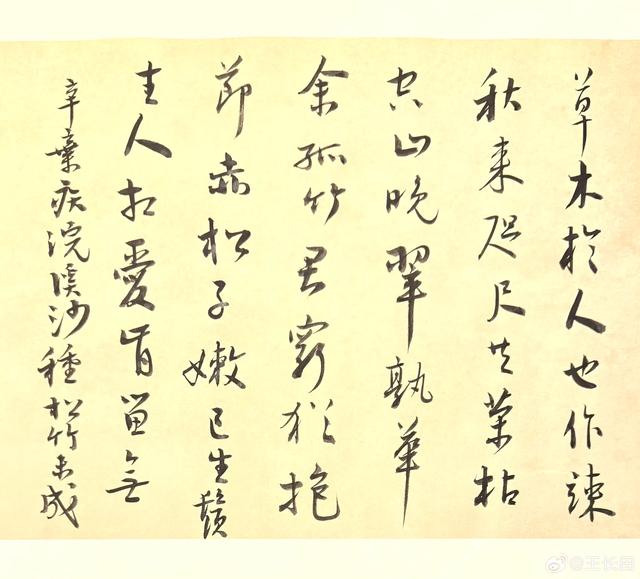 草木於人也作疎
秋來咫尺共榮枯
空山晚翠孰華
余孤竹君窮猶抱
節赤松子嫩已生鬚
主人相愛肯留無
辛棄疾浣溪沙種松竹未成